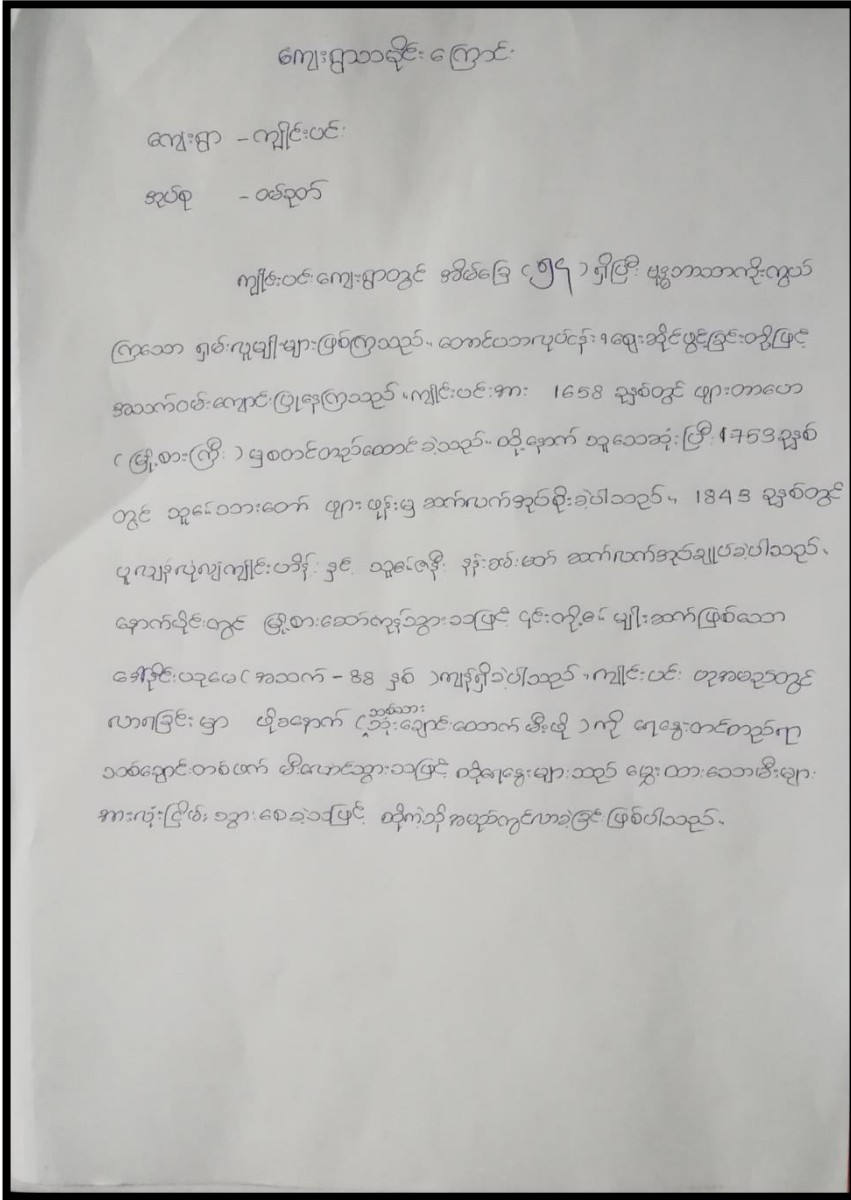 ကျေးရွာသမိုင်းကြောင်း
ကျေးရွာ - ကျိုင်းပင်း
အုပ်စု - ဝမ်ခုတ်
ကျိုင်းပင်းကျေးရွာတွင် အိမ်ခြေ (၅၄) ရှိပြီး ဗုဒ္ဓဘာသာကိုးကွယ်
ကြသော ရှမ်းလူမျိုးများဖြစ်ကြသည်။ တောင်ယာလုပ်ငန်း၊ ဈေးဆိုင်ဖွင့်ခြင်းတို့ဖြင့်
အသက်ဝမ်းကျောင်းပြုနေကြသည်။ ကျိုင်းပင်းအား 1658 ခုနှစ်တွင် ဖျားတာဟော
(မြို့စားကြီး) မှစတင်တည်ထောင်ခဲ့သည်။ ထို့နောက် သူသေဆုံးပြီး 1753 ခုနှစ်
တွင် သူ၏သားတော် ဖျားဖုန်းမှ ဆက်လက်အုပ်စိုးခဲ့ပါသည်။ 1843 ခုနှစ်တွင်
နှင့် သူ၏ဇနီး နန်းအမ်းမတ် ဆက်လက်အုပ်ချုပ်ခဲ့ပါသည်။
နောက်ပိုင်းတွင် မြို့စားစော်ကုန်သွားသဖြင့် ၎င်းတို့၏ မျိုးဆက်ဖြစ်သော
(အသက် - 88 နှစ်) ကျန်ရှိခဲ့ပါသည်။ ကျိုင်းပင်း ဟုအမည်တွင်
လာရခြင်းမှာ ဖိုခနောက် (သစ်သားသုံးချောင်းထောက်မီးဖို) ကို ရေနွေးတင်တည်ရာ
သစ်ချောင်းတစ်ဖက် မီးလောင်သွားသဖြင့် ထိုရေနွေးများသည် မွှေးထားသောမီးများ
အားလုံးငြိမ်းသွားစေခဲ့သဖြင့် ထိုကဲ့သို့အမည်တွင်လာခဲ့ခြင်းဖြစ်ပါသည်။